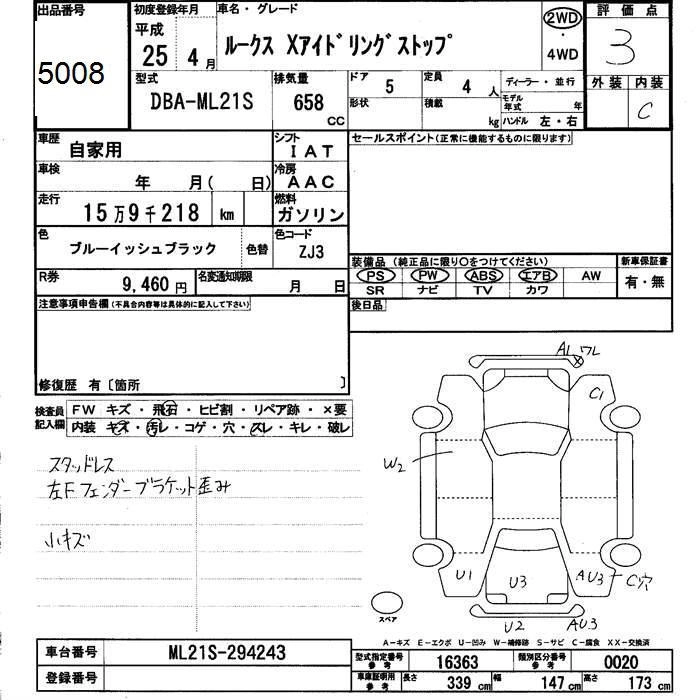 出品番号
5008
初度登録年月
平成
25 4 月
車名・グレード
ルークス Xアイドリングストップ
2WD
・
4WD
評価点
3
外装 内装
C
型式
DBA-ML21S
排気量
658
CC
ドア 5
形状
定員 4 人
積載 kg
ディーラー・並行
モデル年式 年
ハンドル 左・右
車歴
自家用
シフト
IAT
車検
年 月( 日)
冷房
AAC
走行
15万9千218 km
燃料
ガソリン
色
ブルーイッシュブラック
色替
色コード
ZJ3
R券
9,460 円
名変通知期限
月 日
セールスポイント(正常に機能するものに限ります)
装備品(純正品に限り○をつけてください)
PS PW ABS エアB AW
SR ナビ TV カワ
新車保証書
有・無
後日品
注意事項申告欄(不具合内容等は具体的に記入して下さい)
修復歴 有〔箇所 〕
検査員記入欄
FW キズ・飛石・ヒビ割・リペア跡・×要
内装 キズ・汚レ・コゲ・穴・スレ・キレ・破レ
スタッドレス
左Fフェンダーブラケット歪み
小キズ
A1 ワレ
C1
W2
U1
U3
AU3
C穴
U2
AU3
スペア
A-キズ E-エクボ U-凹み W-補修跡 S-サビ C-腐食 XX-交換済
車台番号
ML21S-294243
登録番号
型式指定番号
参考
16363
類別区分番号
参考
0020
車庫証明用
参考
長さ 339 cm
幅 147 cm
高さ 173 cm